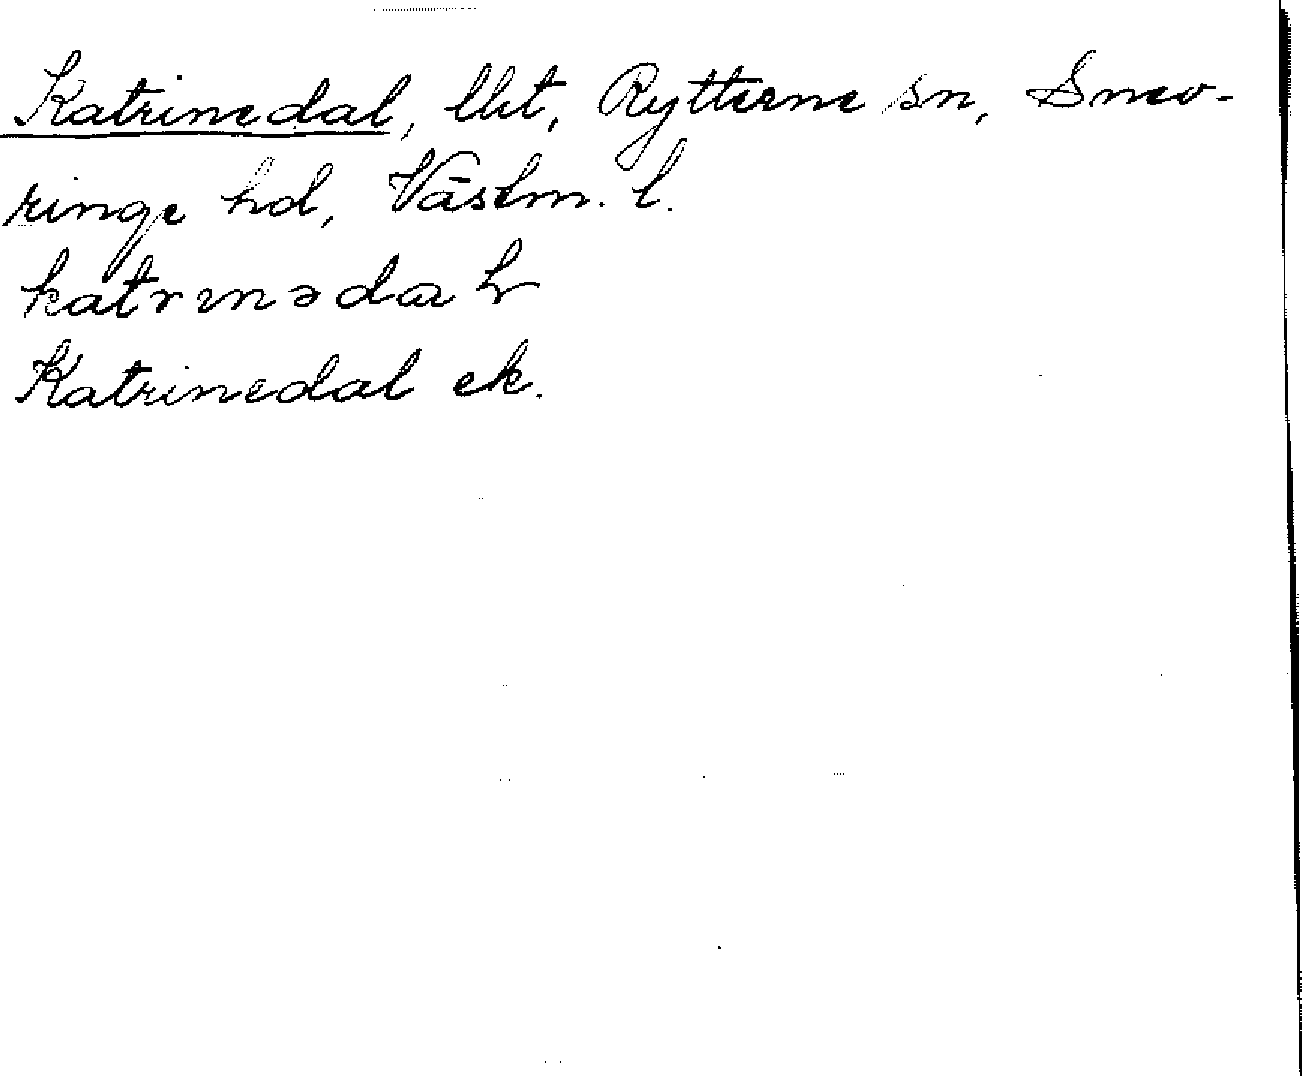 Katrinedal, lht, Rytterne sn, Snev-
ringe hd, Västm. l.
katrinədɑL
Katrinedal ek.